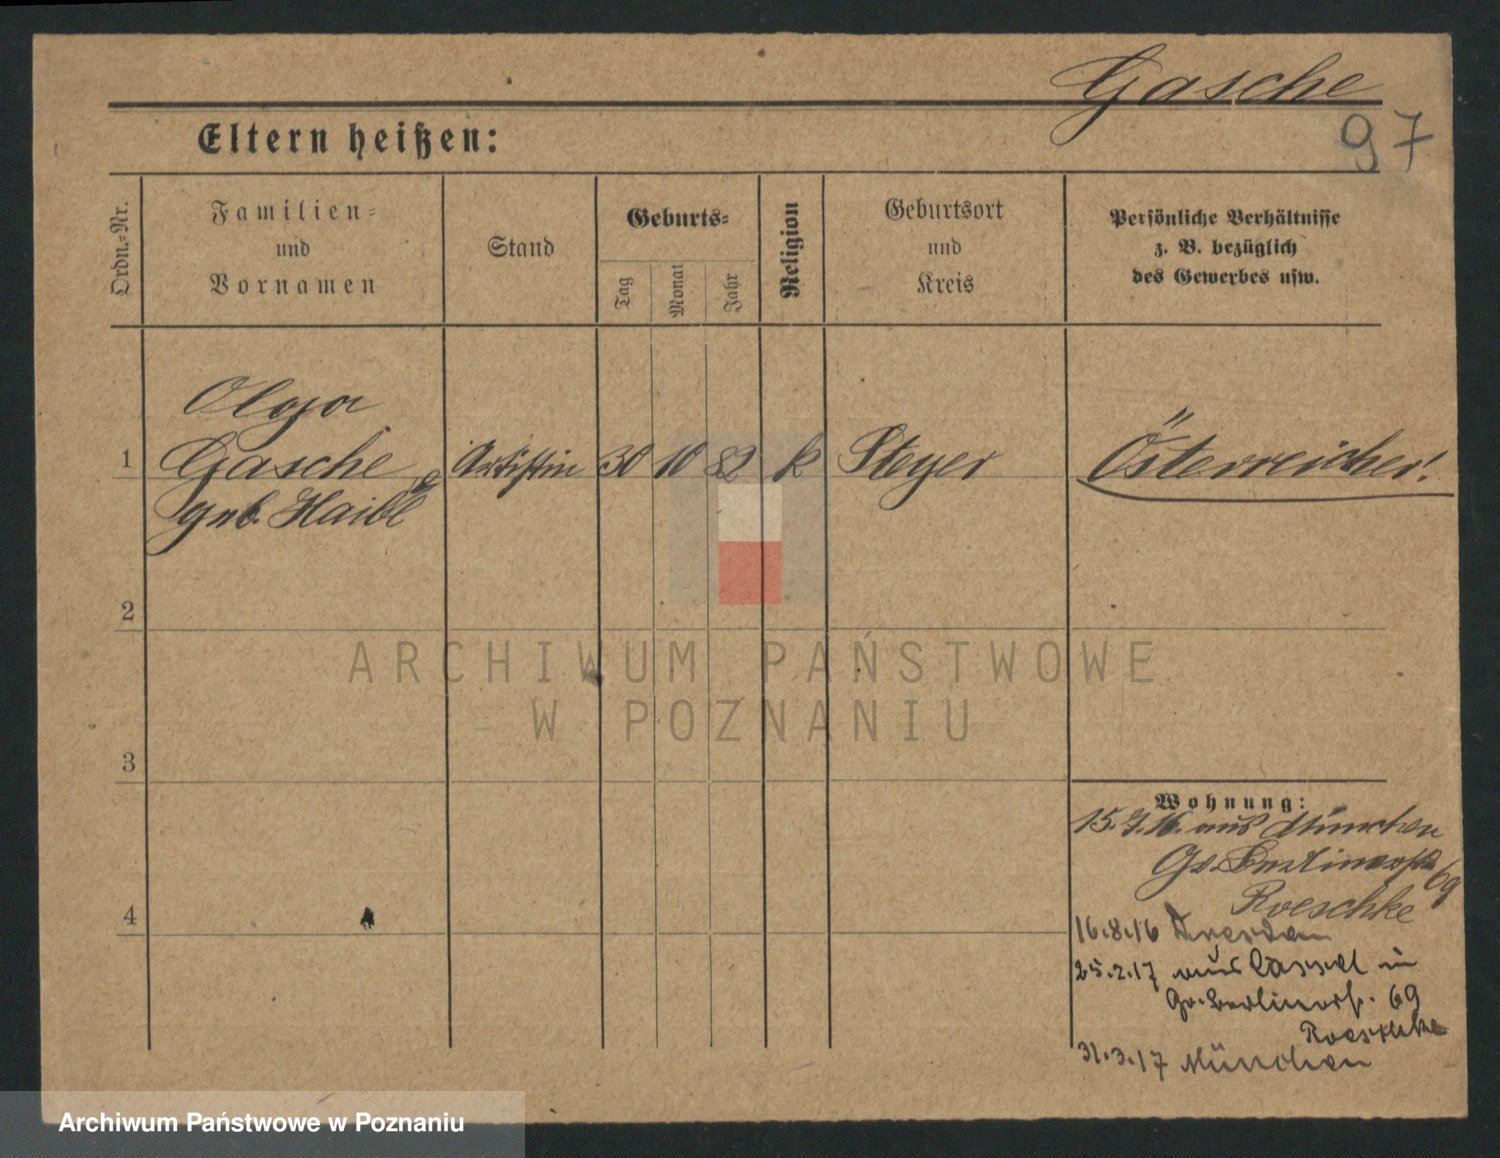 Gasche
97
Eltern heißen:
Ordn.-Nr.
Familien-
und
Vornamen
Stand
Geburts-
Tag
Monat
Jahr
Religion
Geburtsort
und
Kreis
Persönliche Verhältnisse
z. B. bezüglich
des Gewerbes usw.
Olga
1 Gasche Artistin 30 10 82 k Steyer Österreicher!
geb. Haibl
2
3
4
ARCHIWUM PAŃSTWOWE
W POZNANIU
Wohnung:
15.7.16. aus München
Gr. Berlinerstr. 69
Roeschke
16.8.16 Dresden
25.2.17 aus Cassel in
Gr. Berlinerstr. 69
Roeschke
31.3.17 München
Archiwum Państwowe w Poznaniu